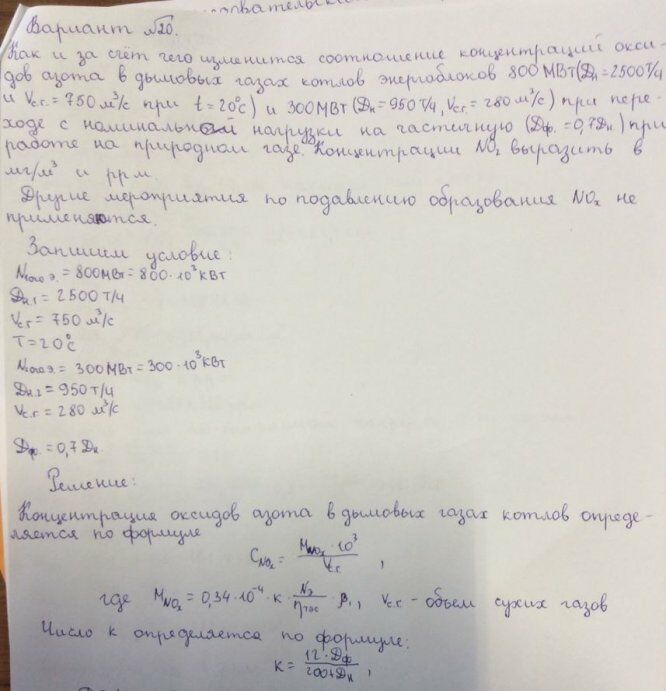 Вариант №20.
Как и за счёт чего изменится соотношение концентраций окси-
дов азота в дымовых газах котлов энергоблоков 800 МВт (Дн = 2500 т/ч
и Vс.г. = 750 м³/с при t = 20°C) и 300 МВт (Дн = 950 т/ч, Vс.г. = 280 м³/с) при пере-
ходе с номинальной нагрузки на частичную (Дф. = 0,7Дн) при
работе на природном газе. Концентрации NO₂ выразить в
мг/м³ и ppm.
Другие мероприятия по подавлению образования NOx не
применяются.
Запишем условие:
= 800 МВт = 800·10³ кВт
Дн.1 = 2500 т/ч
Vс.г = 750 м³/с
T = 20°C
= 300 МВт = 300·10³ кВт
Дн.2 = 950 т/ч
Vс.г = 280 м³/с
Дф. = 0,7 Дн.
Решение:
Концентрация оксидов азота в дымовых газах котлов опреде-
ляется по формуле
CNO₂ = MNO₂·10³ / Vс.г. ,
где MNO₂ = 0,34·10⁻⁴·к· Nэ / ηтэс ·β₁, Vс.г. - объем сухих газов
Число к определяется по формуле:
к = 12·Дф / 200+Дн ,